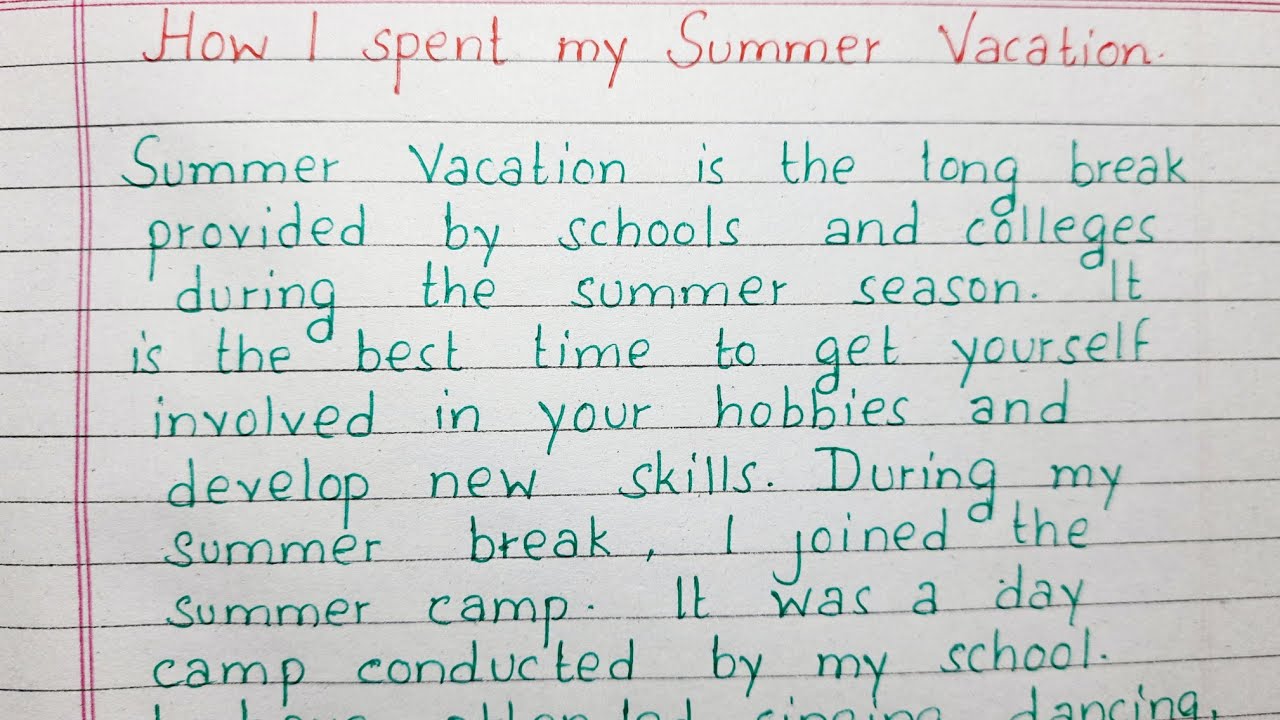 How I spent my Summer Vacation.
Summer Vacation is the long break
provided by schools and colleges
during the summer season. It
is the best time to get yourself
involved in your hobbies and
develop new skills. During my
summer break, I joined the
summer camp. It was a day
camp conducted by my school.
I have attended singing dancing,